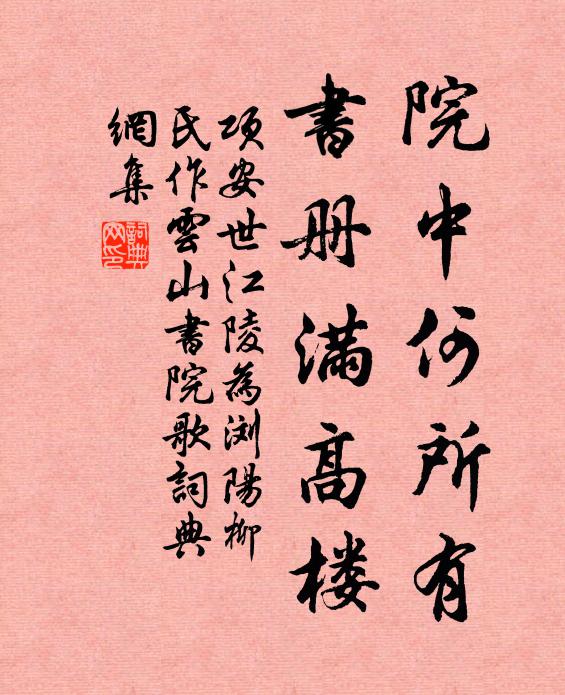 院中何所有
書册满高楼
项安世江陵為浏陽柳
氏作雲山書院歌詞典
網集
詞典網印